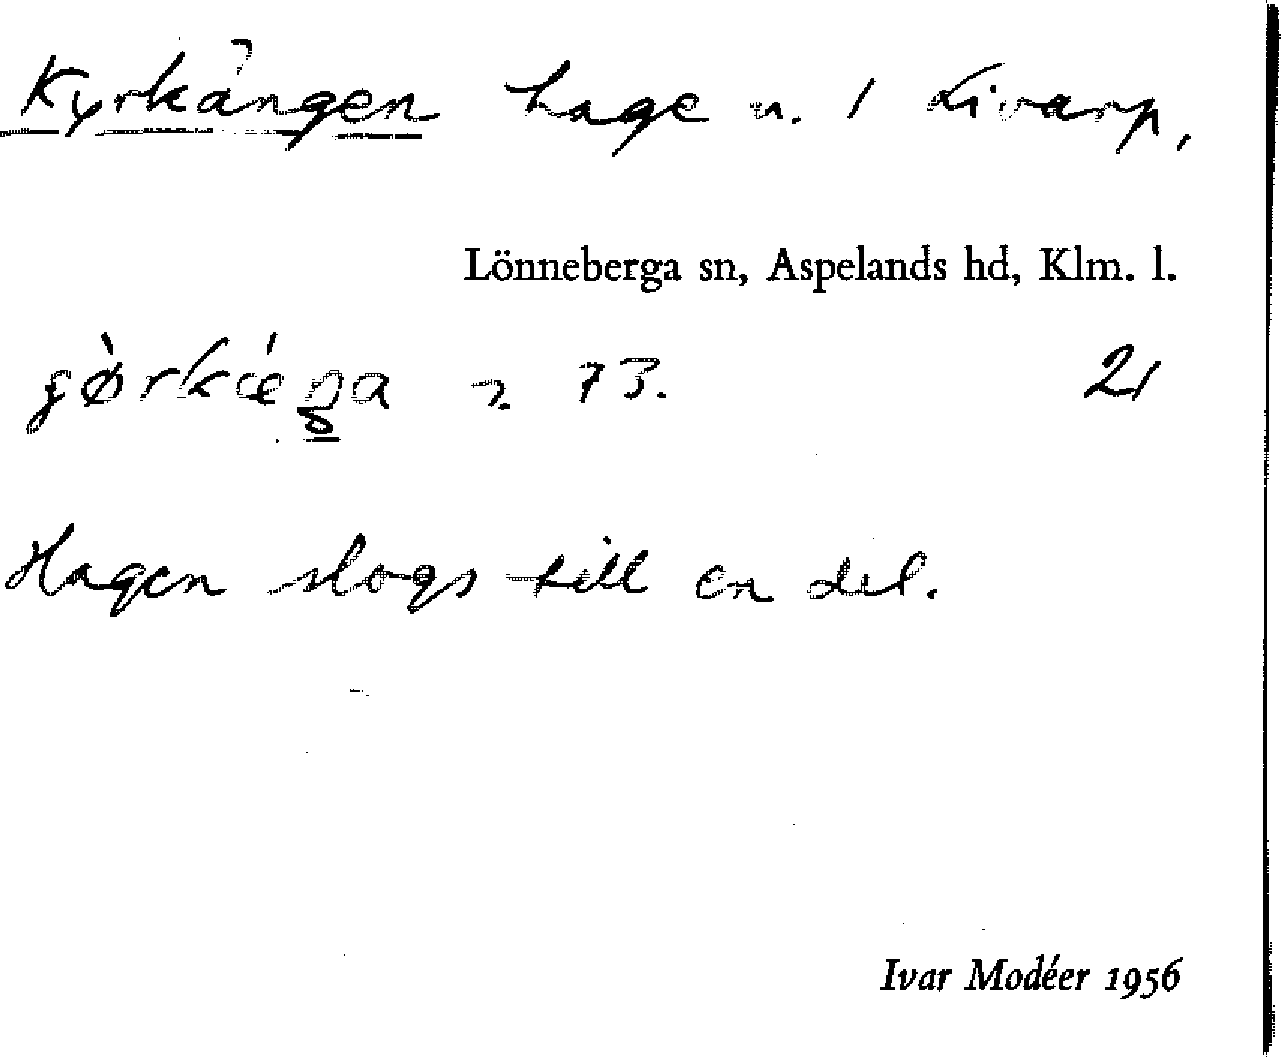 Kyrkängen hage u. 1 Livarp,
Lönneberga sn, Aspelands hd, Klm. l.
73. 21
Hagen slogs till en del.
Ivar Modéer 1956